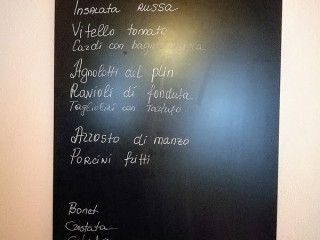 Insalata russa
Vitello tonnato
Cardi con
Agnolotti del plin
Ravioli di fonduta
Tagliolini con Tartufo
Arrosto di manzo
Porcini fritti
Bonet
Crostata